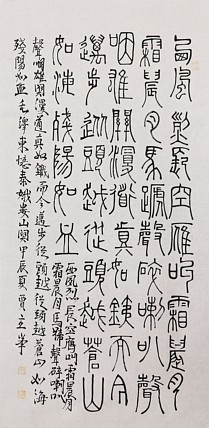 西風烈長空雁叫霜晨月
霜晨月馬蹄聲碎喇叭聲
咽雄關漫道真如鐵而今
邁步從頭越從頭越蒼山
如海殘陽如血
西風烈長空雁叫霜晨月
霜晨月馬蹄聲碎喇叭
聲咽雄關漫道真如鐵而今邁步從頭越從頭越蒼山如海
殘陽如血毛澤東憶秦娥婁山關甲辰夏賈立峯